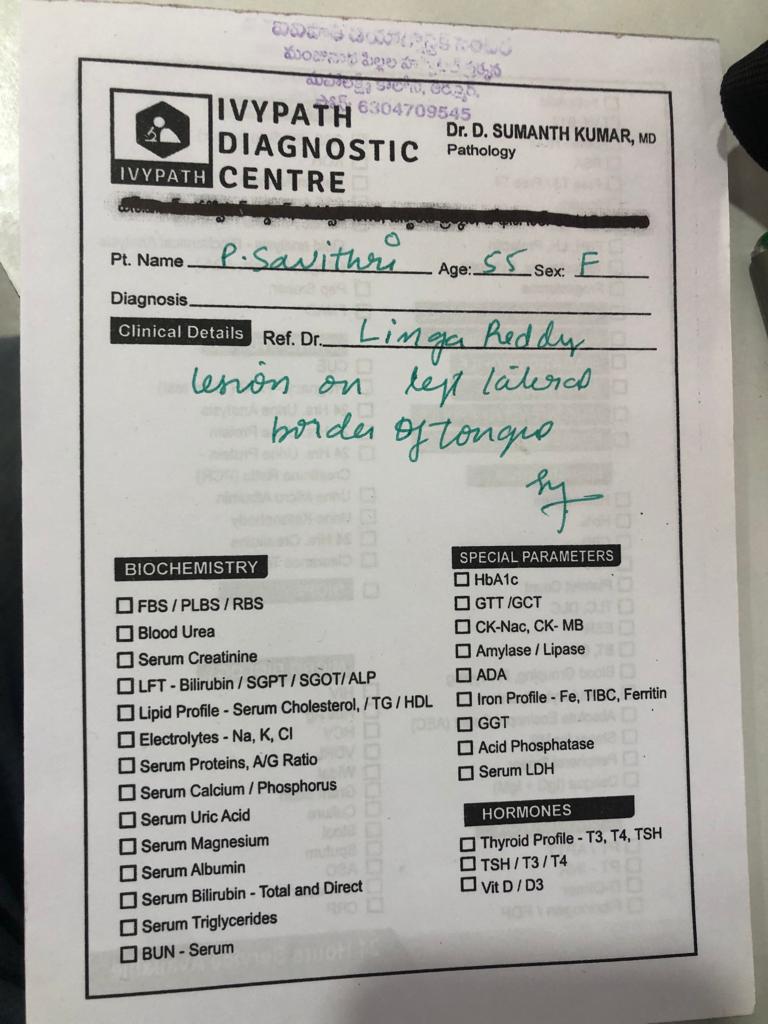 ఫోన్: 6304709545
IVYPATH
DIAGNOSTIC
CENTRE
IVYPATH
Dr. D. SUMANTH KUMAR, MD
Pathology
Pt. Name P. Savithri Age: 55 Sex: F
Diagnosis
Clinical Details Ref. Dr. Linga Reddy
lesion on left lateral
border of tongue
BIOCHEMISTRY
FBS / PLBS / RBS
Blood Urea
Serum Creatinine
LFT - Bilirubin / SGPT / SGOT/ ALP
Lipid Profile - Serum Cholesterol, / TG / HDL
Electrolytes - Na, K, Cl
Serum Proteins, A/G Ratio
Serum Calcium / Phosphorus
Serum Uric Acid
Serum Magnesium
Serum Albumin
Serum Bilirubin - Total and Direct
Serum Triglycerides
BUN - Serum
SPECIAL PARAMETERS
HbA1c
GTT /GCT
CK-Nac, CK- MB
Amylase / Lipase
ADA
Iron Profile - Fe, TIBC, Ferritin
GGT
Acid Phosphatase
Serum LDH
HORMONES
Thyroid Profile - T3, T4, TSH
TSH / T3 / T4
Vit D / D3